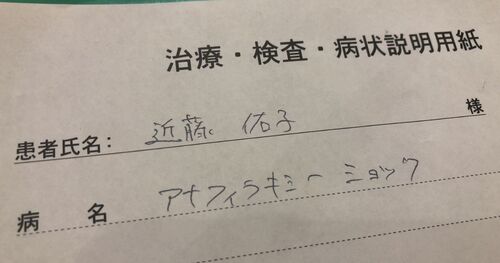 治療・検査・病状説明用紙
患者氏名: 近藤 佑子 様
病 名 アナフィラキシー ショック